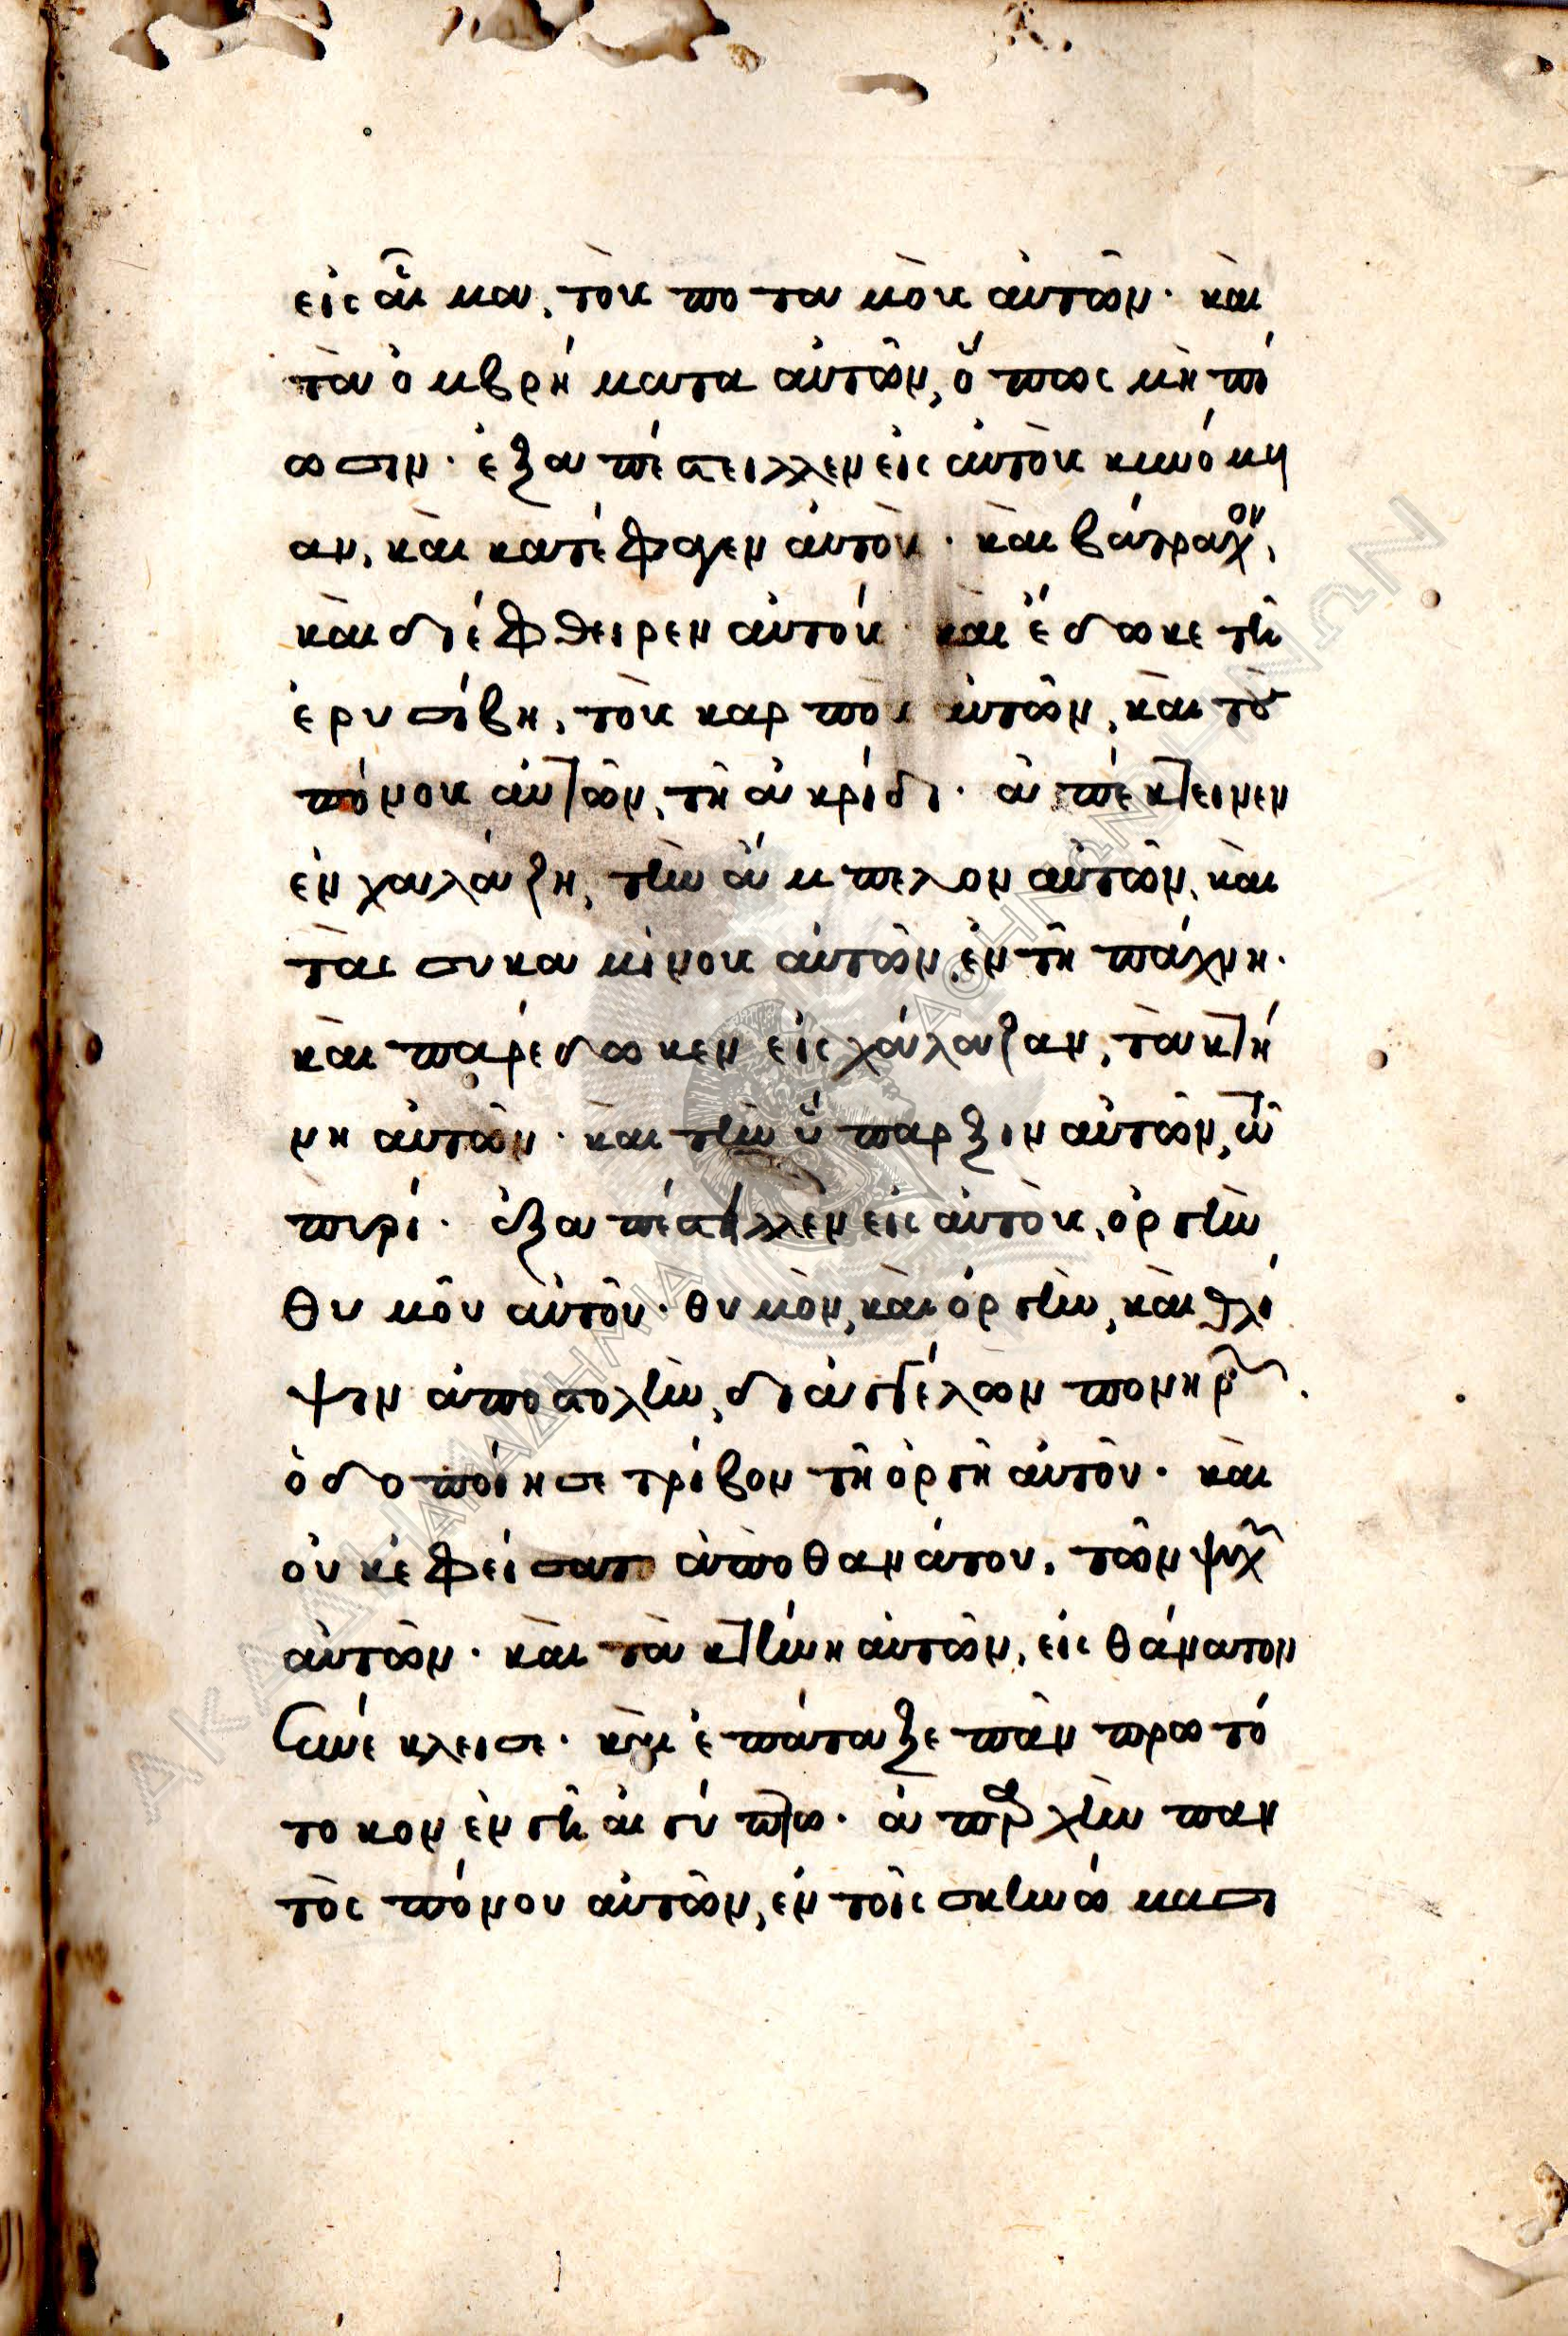 εἰς αἷμα, τοὺς ποταμοὺς αὐτῶν· καὶ
τὰ ὀμβρήματα αὐτῶν, ὅπως μὴ πί
ωσιν· ἐξαπέστειλλεν εἰς αὐτοὺς κυνόμυι
αν, καὶ κατέφαγεν αὐτούς· καὶ βάτραχον,
καὶ διέφθειρεν αὐτούς· καὶ ἔδωκε τῇ
ἐρυσίβῃ, τοὺς καρποὺς αὐτῶν, καὶ τοὺς
πόνους αὐτῶν, τῇ ἀκρίδι. ἀπέκτεινεν
ἐν χαλάζῃ, τὴν ἄμπελον αὐτῶν, καὶ
τὰς συκαμίνους αὐτῶν ἐν τῇ πάχνῃ.
καὶ παρέδωκεν εἰς χάλαζαν, τὰ κτή
νη αὐτῶν· καὶ τὴν ὕπαρξιν αὐτῶν, τῷ
πυρί. ἐξαπέστειλλεν εἰς αὐτοὺς, ὀργὴν
θυμοῦ αὐτοῦ· θυμὸν, καὶ ὀργὴν, καὶ θλί
ψιν ἀποστολὴν, δι ἀγγέλων πονηρῶν.
ὁδοποίησε τρίβον τῇ ὀργῇ αὐτοῦ· καὶ
οὐκ ἐφείσατο ἀπὸ θανάτου, τῶν ψυχῶν
αὐτῶν· καὶ τὰ κτήνη αὐτῶν, εἰς θάνατον
συνέκλεισε· καὶ ἐπάταξε πᾶν πρωτό
τοκον ἐν γῇ αἰγύπτῳ· ἀπαρχὴν παν
τὸς πόνου αὐτῶν, ἐν τοῖς σκηνώμασι